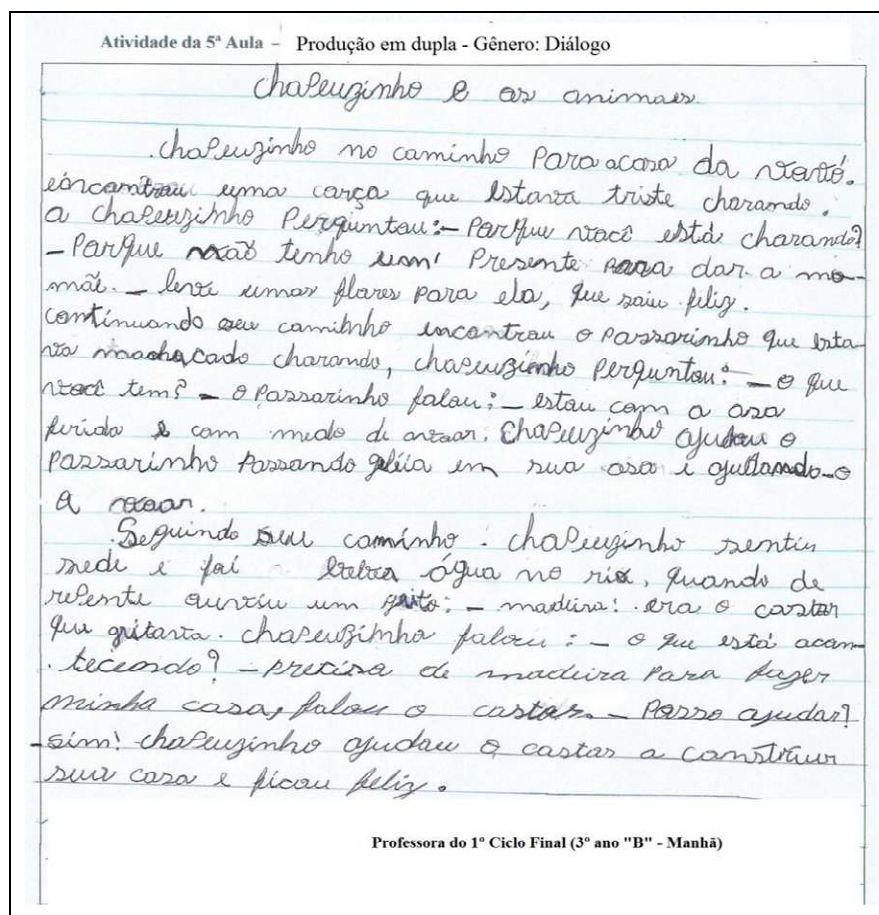 Atividade da 5ª Aula – Produção em dupla - Gênero: Diálogo
chapeuzinho e os animaes
.chapeuzinho no caminho para acasa da vovó.
encontrou uma corça que estava triste chorando.
a chapeuzinho perguntou:- porque você está chorando?
- porque não tenho um presente para dar a ma-
mãe. - leve umas flores para ela, que saiu feliz.
continuando seu caminho encontrou o passarinho que esta-
va machucado chorando, chapeuzinho perguntou: - o que
você tem? - o passarinho falou: - estou com a asa
ferida e com medo de voar. chapeuzinho ajudou o
passarinho passando geléia em sua asa e ajudando-o
a voar.
.Seguindo seu caminho. chapeuzinho sentiu
sede e foi beber água no rio, quando de
repente ouviu um grito: - madeira! era o castor
que gritava. chapeuzinho falou: - o que está acon-
tecendo? - preciso de madeira para fazer
minha casa, falou o castor. - posso ajudar?
- sim! chapeuzinho ajudou o castor a construir
sua casa e ficou feliz.
Professora do 1º Ciclo Final (3º ano "B" - Manhã)